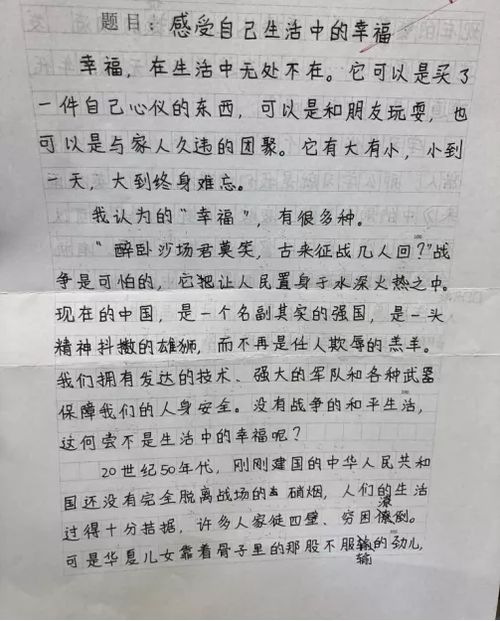 题目：感受自己生活中的幸福
幸福，在生活中无处不在。它可以是买了
一件自己心仪的东西，可以是和朋友玩耍，也
可以是与家人久违的团聚。它有大有小，小到
一天，大到终身难忘。
我认为的“幸福”，有很多种。
“醉卧沙场君莫笑，古来征战几人回？”战
争是可怕的，它把让人民置身于水深火热之中。
现在的中国，是一个名副其实的强国，是一头
精神抖擞的雄狮，而不再是任人欺辱的羔羊。
我们拥有发达的技术、强大的军队和各种武器
保障我们的人身安全。没有战争的和平生活，
这何尝不是生活中的幸福呢？
20世纪50年代，刚刚建国的中华人民共和
国还没有完全脱离战场的硝烟，人们的生活
过得十分拮据，许多人家徒四壁、穷困潦倒。
可是华夏儿女靠着骨子里的那股不服输的劲儿，